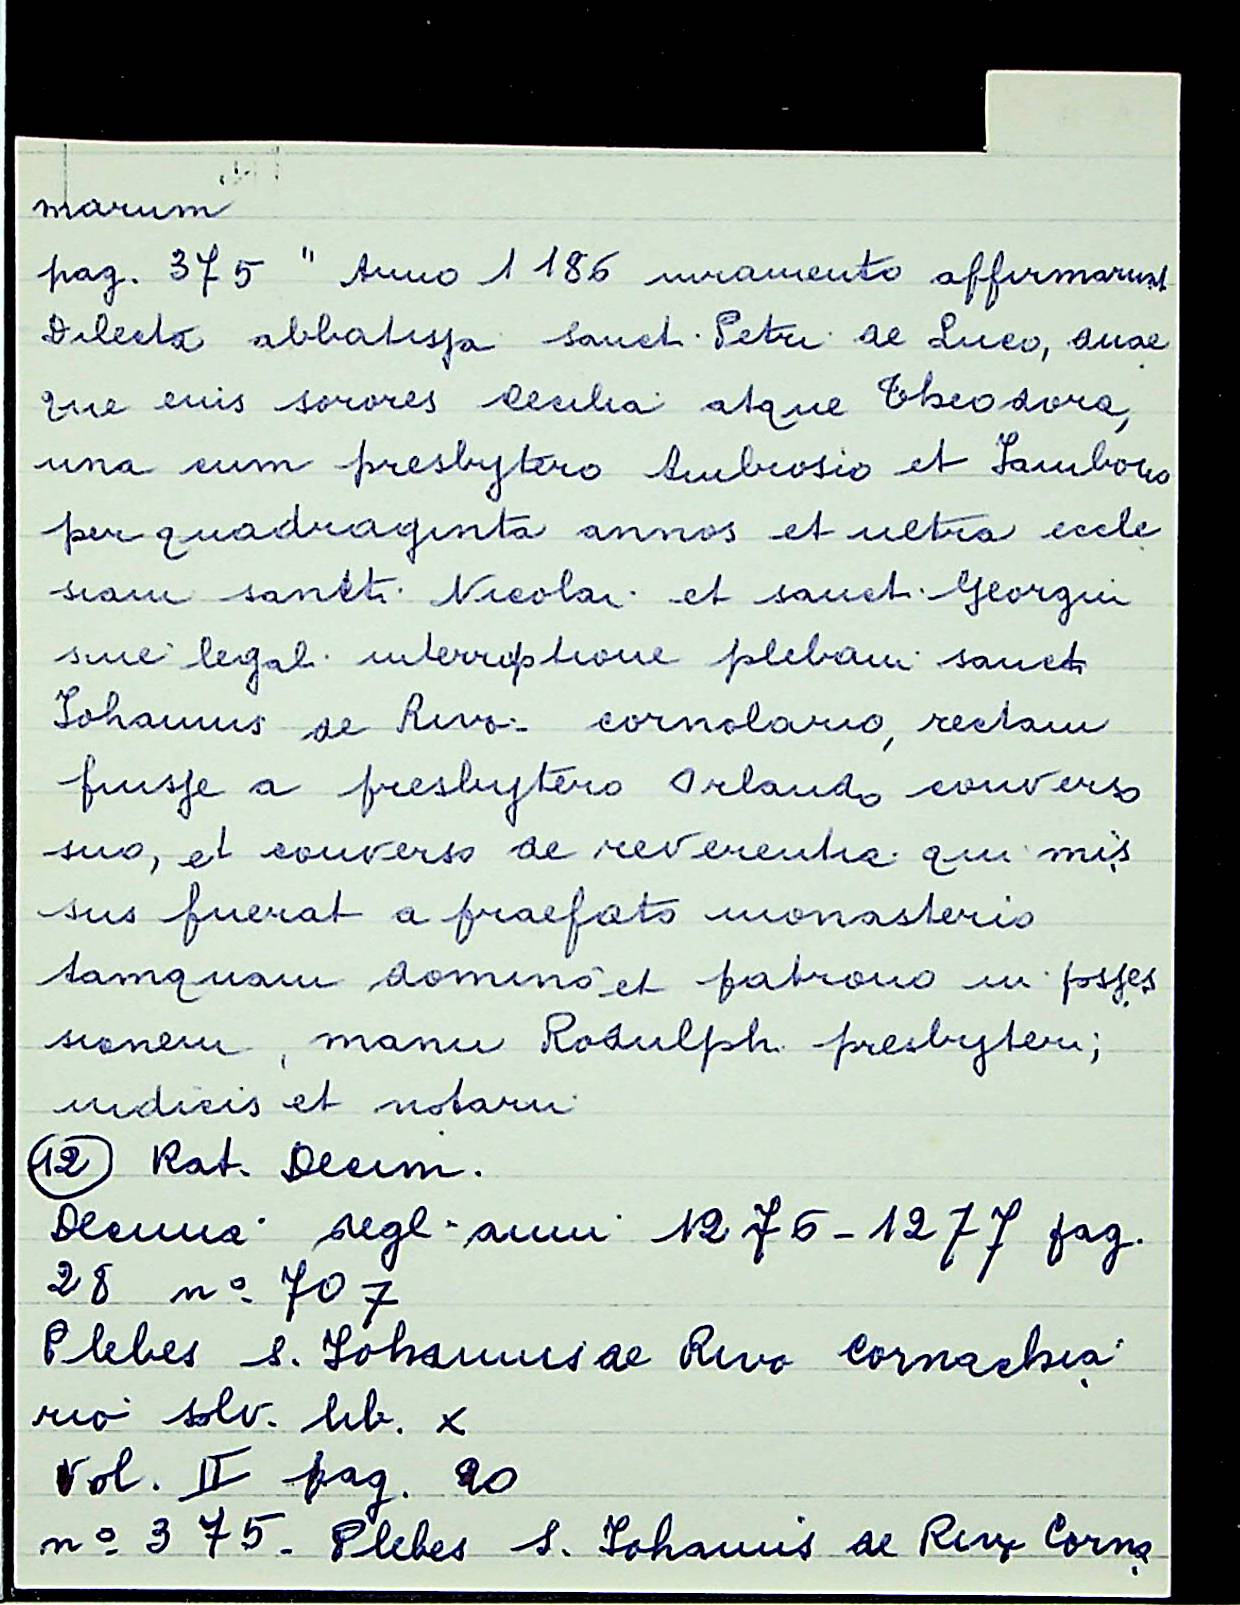 marum
pag. 375 " Anno 1186 iuramento affirmarunt
Dilecta abbatissa sancti Petri de Luco, duae
que eius sorores Cecilia atque Theodora,
una cum presbytero Ambrosio et
per quadraginta annos et ultra eccle
siam sancti Nicolai et sancti Georgii
sine legali interruptione plebani sancti
Iohannis de Rivo cornolario, rectam
fuisse a presbytero Orlando converso
suo, et converso de reverentia qui mis
sus fuerat a praefato monasterio
tamquam domino et patrono in posses
sionem, manu Rodulphi presbyteri;
iudicis et notarii
(12) Rat. Decim.
Decima degl. anni 1276-1277 pag.
28 nº 707
Plebes S. Iohannis de Rivo Cornachia
rio solv. lib. X
Vol. II pag. 20
nº 375 - Plebes S. Iohannis de Rivo Corna